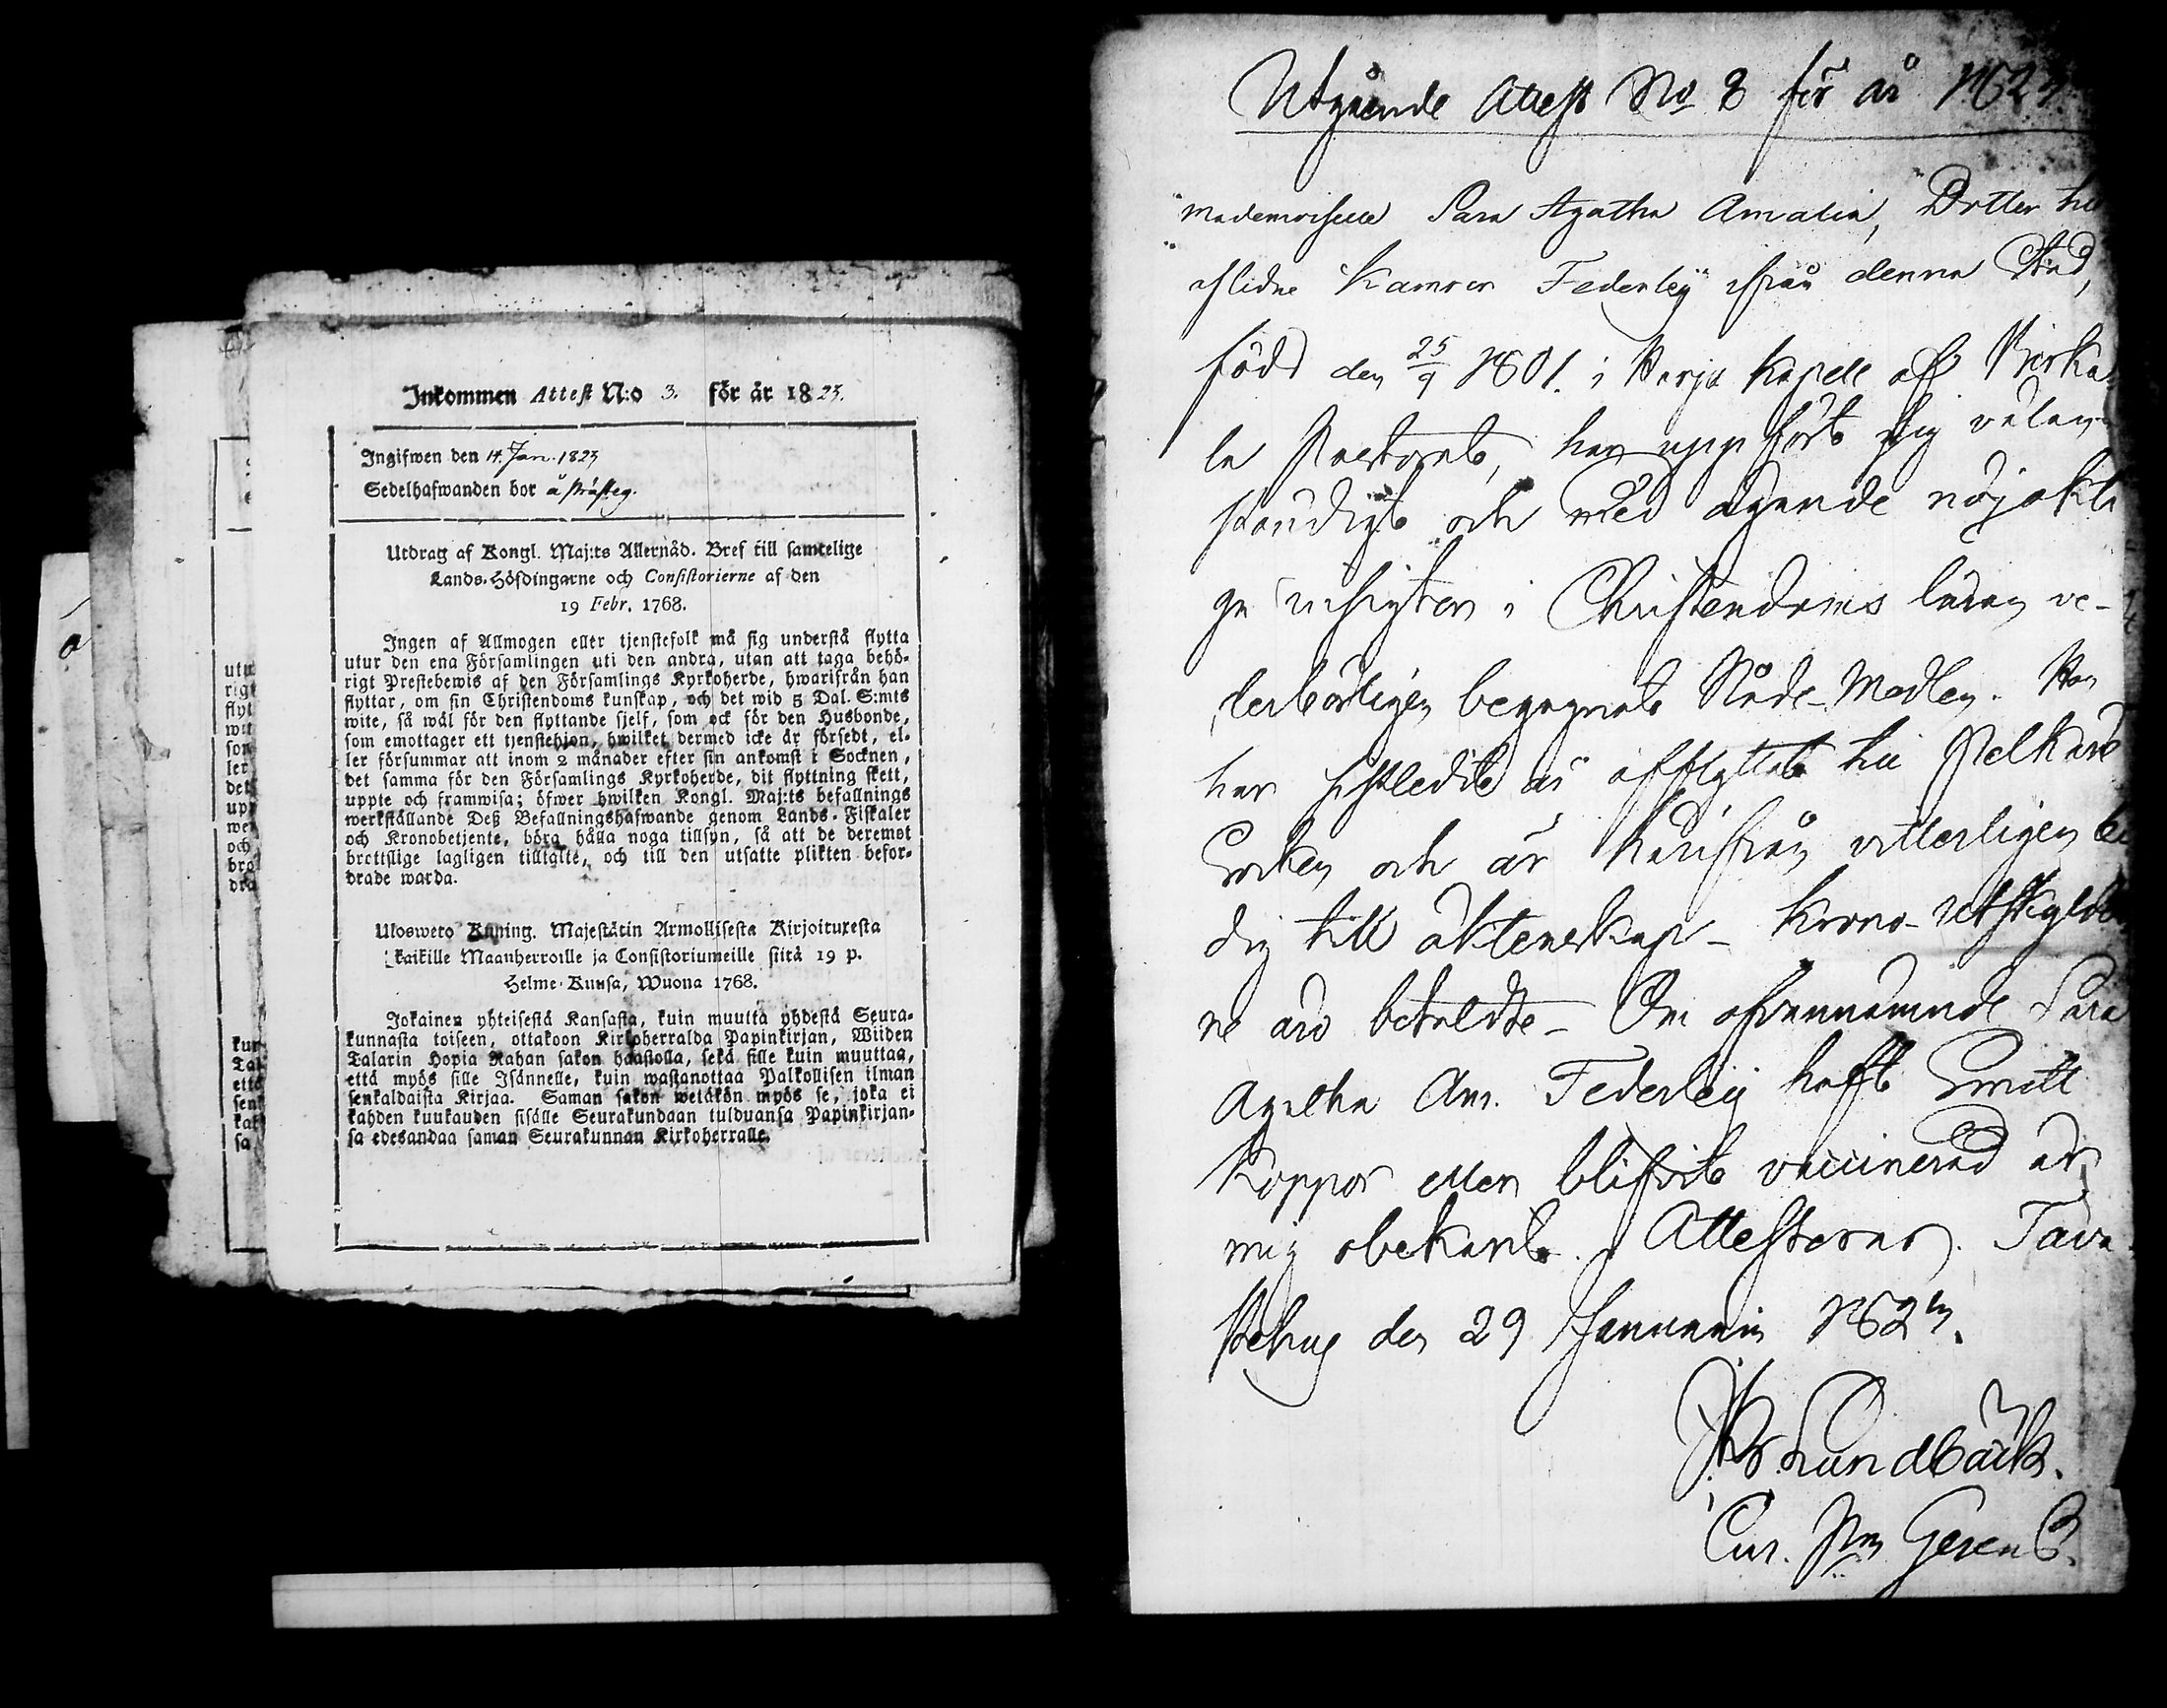 Inkommen Attest N:o 3. för år 1823.
Ingifwen den 14. Jan. 1823
Sedelhafwanden bor å
Utdrag af Kongl. Maj:ts Allernåd. Bref till samtelige
Lands-Höfdingarne och Consistorierne af den
19 Febr. 1768.
Ingen af Allmogen eller tjenstefolk må sig understå flytta
utur den ena Församlingen uti den andra, utan att taga behö-
rigt Prestebewis af den Församlings Kyrkoherde, hwarifrån han
flyttar, om sin Christendoms kunskap, och det wid 5 Dal. S:mts
wite, så wäl för den flyttande sjelf, som ock för den Husbonde,
som emottager ett tjenstehjon, hwilket dermed icke är försedt, el-
ler försummar att inom 2 månader efter sin ankomst i Socknen,
det samma för den Församlings Kyrkoherde, dit flyttning skett,
uppte och framwisa; öfwer hwilken Kongl. Maj:ts befallnings
werkställande Deß Befallningshafwande genom Lands-Fiskaler
och Kronobetjente, böra hålla noga tillsyn, så att de deremot
brottslige lagligen tilltalte, och till den utsatte plikten befor-
drade warda.
Ulosweto Kuning. Majestätin Armollisesta Kirjoituxesta
kaikille Maanherroille ja Consistoriumeille siitä 19 p.
Helme-Kuusa, Wuona 1768.
Jokainen yhteisestä Kansasta, kuin muutta yhdestä Seura-
kunnasta toiseen, ottakoon Kirkoherralda Papinkirjan, Wiiden
Talarin Hopia Rahan sakon haastolla, sekä sille kuin muuttaa,
että myös sille Isännelle, kuin wastanottaa Palkollisen ilman
senkaldaista Kirjaa. Saman sakon wetäkön myös se, joka ei
kahden kuukauden sisälle Seurakundaan tulduansa Papinkirjan-
sa edesandaa saman Seurakunnan Kirkoherralle.
Utgående Attest No 8 för år 1823
Mademoiselle Sara Agatha Amalia, Dotter till
aflidne Kamrer Federleÿ ifrån denna Stad,
född den 25/9 1801. i Kapell af Birka
la Pastorat, har uppfört sig välan-
ständigt och med ägande nöjakti
ga insigter i Christendoms läran ve-
derbörligen begagnat Nåde-Medlen. Hon
har sistledit år afflyttat till Pelkäne
Socken och är härifrån vitterligen le
dig till äktenskap - Krono-utskylder
ne äro betaldte - Om ofvannämnde Sara
Agatha Am. Federleÿ haft Smitt
Koppor eller blifvit vaccinerad är
mig obekant. Attesterar. Tava
stehus den 29 Januarii 1823.
Sundbäck.
Cur. Gerens.